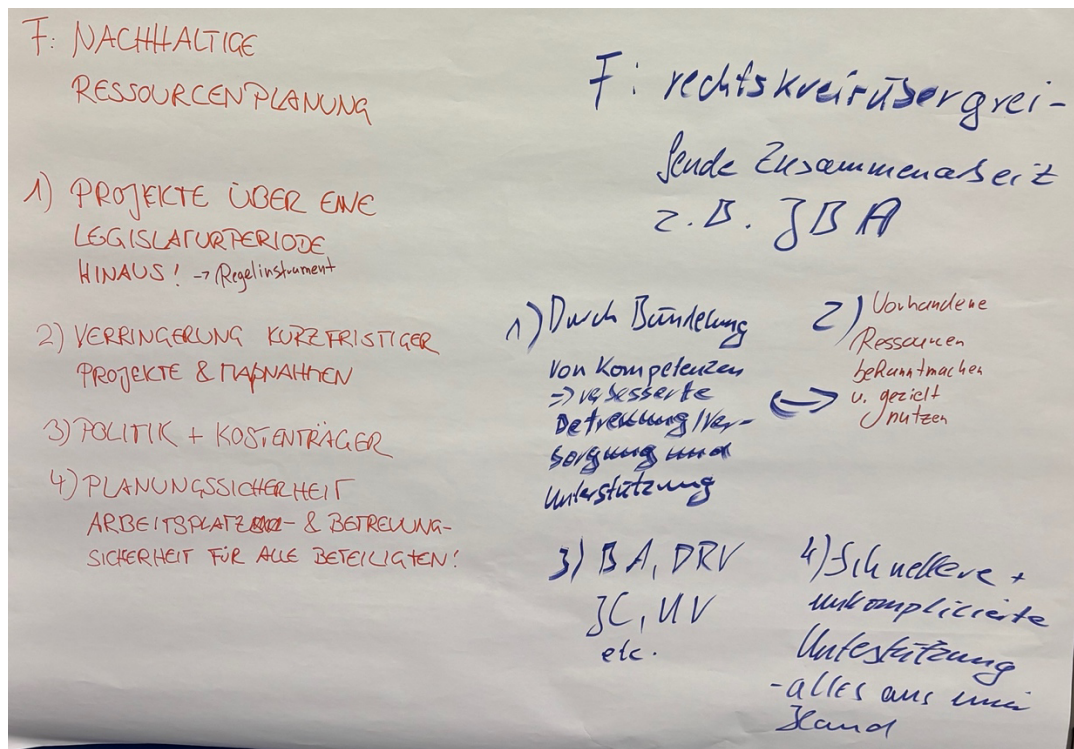 F: NACHHALTIGE
RESSOURCENPLANUNG
1) PROJEKTE ÜBER EINE
LEGISLATURPERIODE
HINAUS! -> Regelinstrument
2) VERRINGERUNG KURZFRISTIGER
PROJEKTE & MAßNAHMEN
3) POLITIK + KOSTENTRÄGER
4) PLANUNGSSICHERHEIT
ARBEITSPLATZ- & BETREUUNG-
SICHERHEIT FÜR ALLE BETEILIGTEN!
F: rechtskreisübergrei-
fende Zusammenarbeit
z.B. JBA
1) Durch Bündelung
von Kompetenzen
=> verbesserte
Betreuung/Ver-
sorgung und
Unterstützung
2) Vorhandene
Ressourcen
bekanntmachen
u. gezielt
nutzen
3) BA, DRV
JC, UV
etc.
4) Schnellere +
unkomplizierte
Unterstützung
- alles aus einer
Hand